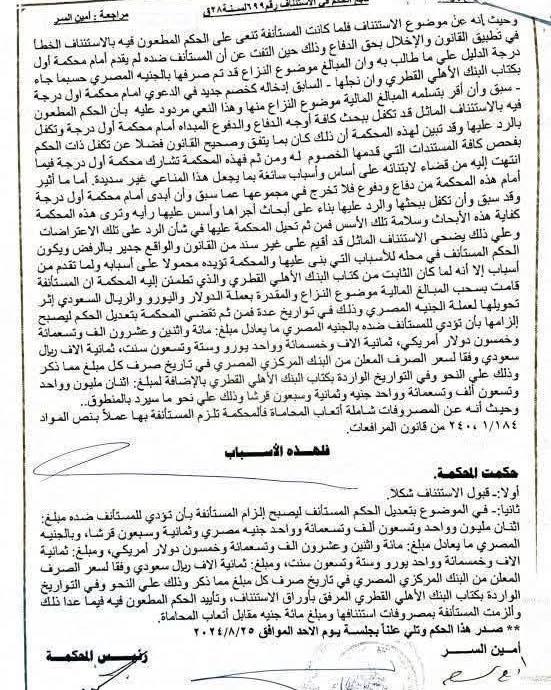 تابع الحكم في الاستئناف رقم ٦٩٩ لسنة ٢٨ ق
مراجعة : أمين السر
وحيث إنه عن موضوع الاستئناف فلما كانت المستأنفة تنعى على الحكم المطعون فيه بالاستئناف الخطأ
في تطبيق القانون والإخلال بحق الدفاع وذلك حين التفت عن أن المستأنف ضده لم يقدم أمام محكمة أول
درجة الدليل على ما طالب به وان المبالغ موضوع النزاع قد تم صرفها بالجنيه المصري حسبما جاء
بكتاب البنك الأهلي القطري وان نجلها - السابق إدخاله كخصم جديد في الدعوي امام محكمة اول درجة
- سبق وأن أقر بتسلمه المبالغ المالية موضوع النزاع منها وهذا النعي مردود عليه بأن الحكم المطعون
فيه بالاستئناف الماثل قد تكفل ببحث كافة أوجه الدفاع والدفوع المبداه أمام محكمة أول درجة وتكفل
بالرد عليها وقد تبين لهذه المحكمة أن ذلك كان بما يتفق وصحيح القانون فضلا عن تكفل ذات الحكم
بفحص كافة المستندات التي قدمها الخصوم له ومن ثم فهذه المحكمة تشارك محكمة أول درجة فيما
انتهت إليه من قضاء لابتنائه على أساس وأسباب سائغة بما يجعل هذا المناعي غير سديدة. أما ما أثير
أمام هذه المحكمة من دفاع ودفوع فلا تخرج في مجموعها عما سبق وأن أبدى أمام محكمة أول درجة
وقد سبق وأن تكفل ببحثها والرد عليها بناء على أبحاث أجراها وأسس عليها رأيه وترى هذه المحكمة
كفاية هذه الأبحاث وسلامة تلك الأسس فمن ثم تحيل المحكمة عليها في شأن الرد على تلك الاعتراضات
وعلي ذلك يضحى الاستئناف الماثل قد أقيم على غير سند من القانون والواقع جدير بالرفض ويكون
الحكم المستأنف في محله للأسباب التي بنى عليها والمحكمة تؤيده محمولا على أسبابه ولما تقدم من
أسباب إلا أنه لما كان الثابت من كتاب البنك الأهلي القطري والذي تطمئن إليه المحكمة ان المستأنفة
قامت بسحب المبالغ المالية موضوع النزاع والمقدرة بعملة الدولار واليورو والريال السعودي إثر
تحويلها لعملة الجنيه المصري وذلك في تواريخ عدة فمن ثم تقضي المحكمة بتعديل الحكم ليصبح
إلزامها بأن تؤدي للمستأنف ضده بالجنيه المصري ما يعادل مبلغ: مائة واثنين وعشرون الف وتسعمائة
وخمسون دولار أمريكي، ثمانية الاف وخمسمائة وواحد يورو وستة وتسعون سنت، ثمانية الاف ريال
سعودي وفقا لسعر الصرف المعلن من البنك المركزي المصري في تاريخ صرف كل مبلغ مما ذكر
وذلك علي النحو وفي التواريخ الواردة بكتاب البنك الأهلي القطري بالإضافة لمبلغ: اثنان مليون وواحد
وتسعون ألف وتسعمائة وواحد جنيه وثمانية وسبعون قرشا وذلك علي نحو ما سيرد بالمنطوق..
وحيث أنه عن المصروفات شاملة أتعاب المحاماة فالمحكمة تلزم المستأنفة بها عملاً بنص المواد
١/١٨٤، ٢٤٠ من قانون المرافعات.
فلهذه الأسباب
حكمت المحكمة.
أولا:- قبول الاستئناف شكلا.
ثانيا:- في الموضوع بتعديل الحكم المستأنف ليصبح إلزام المستأنفة بأن تؤدي للمستأنف ضده مبلغ:
اثنان مليون وواحد وتسعون ألف وتسعمائة وواحد جنيه مصري وثمانية وسبعون قرشا، وبالجنيه
المصري ما يعادل مبلغ: مائة واثنين وعشرون الف وتسعمائة وخمسون دولار أمريكي، ومبلغ: ثمانية
الاف وخمسمائة وواحد يورو وستة وتسعون سنت، ومبلغ: ثمانية الاف ريال سعودي وفقا لسعر الصرف
المعلن من البنك المركزي المصري في تاريخ صرف كل مبلغ مما ذكر وذلك علي النحو وفي التواريخ
الواردة بكتاب البنك الأهلي القطري المرفق بأوراق الاستئناف، وتأييد الحكم المطعون فيه فيما عدا ذلك
وألزمت المستأنفة بمصروفات استئنافها ومبلغ مائة جنيه مقابل أتعاب المحاماة.
** صدر هذا الحكم وتلي علناً بجلسة يوم الاحد الموافق ٢٠٢٤/٨/٢٥
أمين السر
رئيس المحكمة